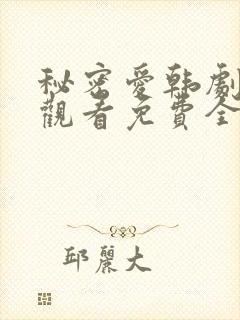 秘密愛韩劇
觀看免費全
邱麗大